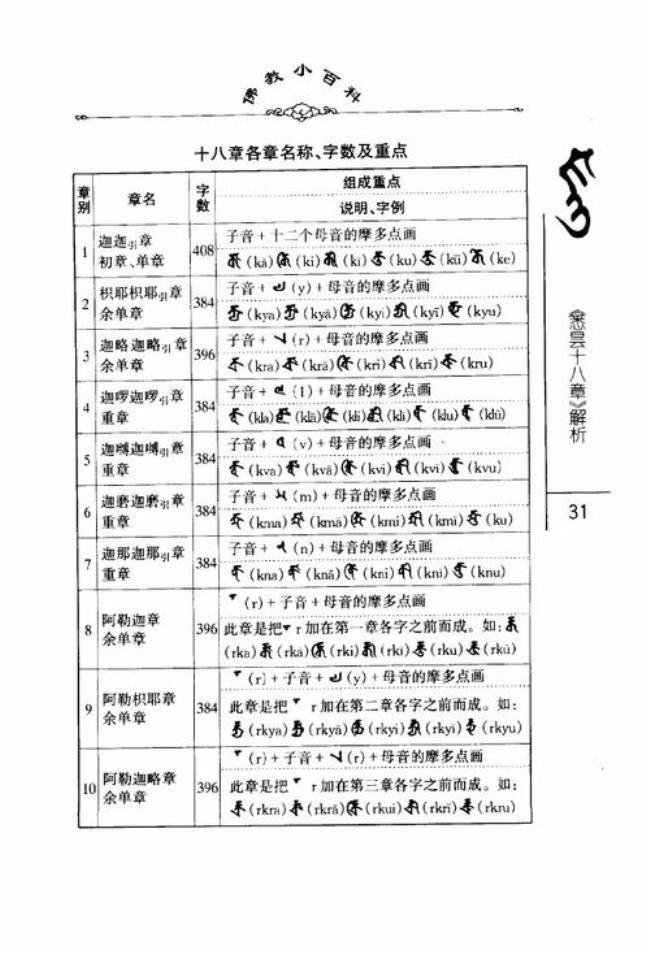 佛教小百科
十八章各章名称、字数及重点
章别 章名 字数 组成重点
说明、字例
1 迦迦引章 初章、单章 408 子音+十二个母音的摩多点画
(kā) (ki) (ki) (ku) (kū) (ke)
2 枳耶枳耶引章 余单章 384 子音+ (y)+母音的摩多点画
(kya) (kyā) (kyi) (kyī) (kyu)
3 迦略迦略引章 余单章 396 子音+ (r)+母音的摩多点画
(kra) (krā) (kri) (krī) (kru)
4 迦啰迦啰引章 重章 384 子音+ (1)+母音的摩多点画
(kla) (klā) (kli) (kli) (klu) (klū)
5 迦嚩迦嚩引章 重章 384 子音+ (v)+母音的摩多点画
(kva) (kvā) (kvi) (kvi) (kvu)
6 迦磨迦磨引章 重章 384 子音+ (m)+母音的摩多点画
(kma) (kmā) (kmi) (kmī) (ku)
7 迦那迦那引章 重章 384 子音+ (n)+母音的摩多点画
(kna) (knā) (kni) (knī) (knu)
8 阿勒迦章 余单章 396 (r)+子音+母音的摩多点画
此章是把 r加在第一章各字之前而成。如:
(rka) (rkā) (rki) (rkī) (rku) (rkū)
9 阿勒枳耶章 余单章 384 (r)+子音+ (y)+母音的摩多点画
此章是把 r加在第二章各字之前而成。如:
(rkya) (rkyā) (rkyi) (rkyī) (rkyu)
10 阿勒迦略章 余单章 396 (r)+子音+ (r)+母音的摩多点画
此章是把 r加在第三章各字之前而成。如:
(rkra) (rkrā) (rkui) (rkrī) (rkru)
《悉昙十八章》解析
31